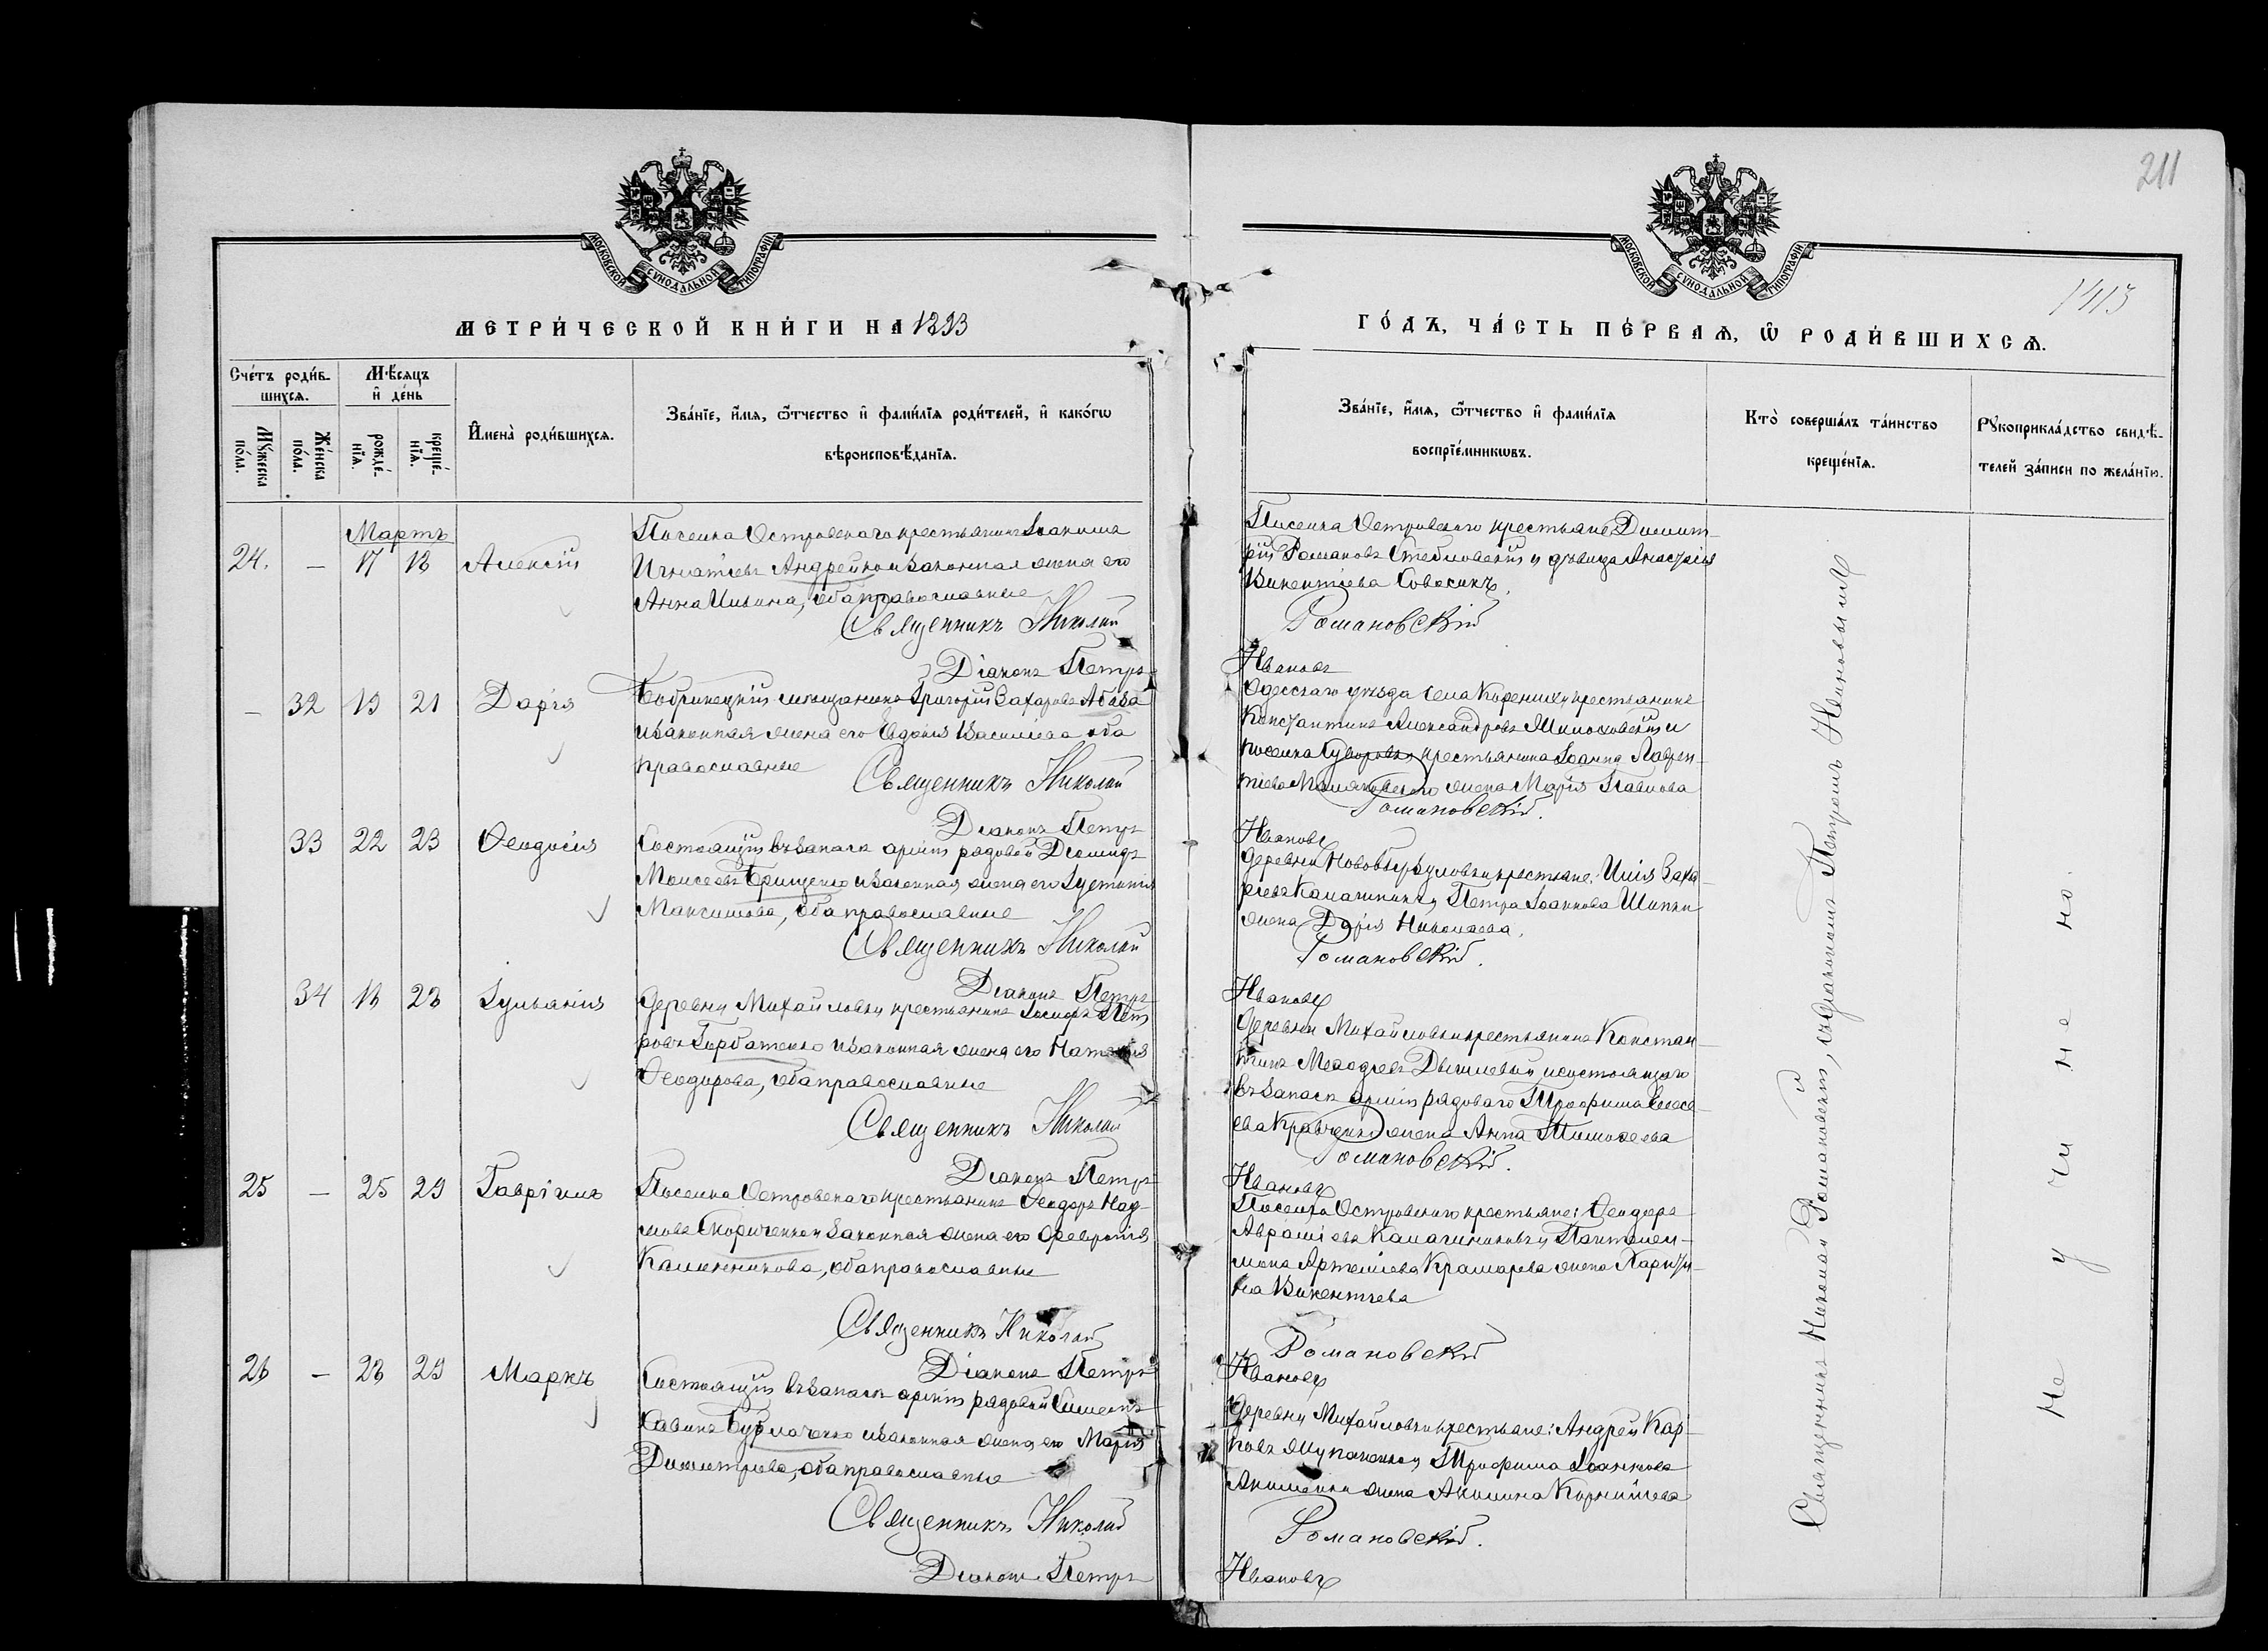 211
1413
МОСКОВСКОЙ СѴНОДАЛЬНОЙ ТИПОГРАФІИ
МОСКОВСКОЙ СѴНОДАЛЬНОЙ ТИПОГРАФІИ
МЕТРИ́ЧЕСКОЙ КНИ́ГИ НА 1893
ГО́ДЪ, ЧА́СТЬ ПЕ́РВАѦ, Ѽ РОДИ́ВШИХСѦ.
Сче́тъ роди́в-
шихсѧ.
Мꙋ́жеска по́ла.
Же́нска по́ла.
Мѣ́сѧцъ
и҆ де́нь
рожде́-нїѧ.
креще́-нїѧ.
И҆мена̀ роди́вшихсѧ.
Зва́нїе, и҆́мѧ, ѻ҆́тчество и҆ фами́лїѧ роди́телей, и҆ како́гѡ
вѣроисповѣ́данїѧ.
Зва́нїе, и҆́мѧ, ѻ҆́тчество и҆ фами́лїѧ
воспрїе́мникѡвъ.
Кто̀ соверша́лъ та́инство
креще́нїѧ.
Рꙋкоприкла́дство свидѣ́-
телей за́писи по жела́нїю.
Мартъ
24. — 17 18 Алексій
Поселка Островскаго крестьянинъ Іоакимъ
Игнатіевъ Андрейко и законная жена его
Анна, оба православные
Священникъ Николай
Діаконъ Петръ
Поселка Островского крестьяне: Димит-
рій Романовъ Стебловскій и дѣвица Анастасія
Викентіева
Романовскій
Ивановъ
— 32 19 21 Дарія
Бобринецкій мѣщанинъ Григорій Захаровъ Абаза
и законная жена его Евдокія Василіева оба
православные
Священникъ Николай
Діаконъ Петръ
Одесскаго уѣзда села крестьянинъ
Константинъ Александровъ и
поселка крестьянина Іоанна Лаврен-
тіева жена Марія Павлова
Романовскій.
Ивановъ
33 22 23 Ѳеодосія
Состоящій въ запасѣ арміи рядовой Діомидъ
Моисеевъ Грищенко и законная жена его Іустинія
Максимова, оба православные
Священникъ Николай
Діаконъ Петръ
Деревни крестьяне: Илія Заха-
ріевъ Калашникъ и Петра Іоаннова
жена Дарія Николаева.
Романовскій.
Ивановъ
34 18 28 Іуліанія
Деревни Михайловки крестьянинъ Іосифъ Пет-
ровъ Горбатенко и законная жена его Наталія
Ѳеодорова, оба православные
Священникъ Николай
Діаконъ Петръ
Деревни Михайловки крестьянинъ Констан-
тинъ Меѳодіевъ и состоящаго
въ запасѣ арміи рядоваго Трофима
Кравченко жена Анна Тимоѳеева
Романовскій.
Ивановъ
25 — 25 29 Гавріилъ
Поселка Островскаго крестьянинъ Ѳеодоръ
и законная жена его Ефросинія
Каллинникова, оба православные
Священникъ Николай
Діаконъ Петръ
Поселка Островскаго крестьяне: Ѳеодоръ
Авраміевъ Калашниковъ и Пантелеи-
мона Артеміева Крамарева жена Харити-
на Викентіева
Романовскій
Ивановъ
26 — 28 29 Маркъ
Состоящій въ запасѣ арміи рядовой Симеонъ
Саввинъ Бурлаченко и законная жена его Марія
Димитріева, оба православные
Священникъ Николай
Діаконъ Петръ
Деревни Михайловки крестьяне: Андрей Кар-
повъ и Трофима Іоаннова
Акименка жена Акилина Корниліева
Романовскій.
Ивановъ
Священникъ Николай Романовскій, съ діакономъ Петромъ Ивановымъ
Не учинено.